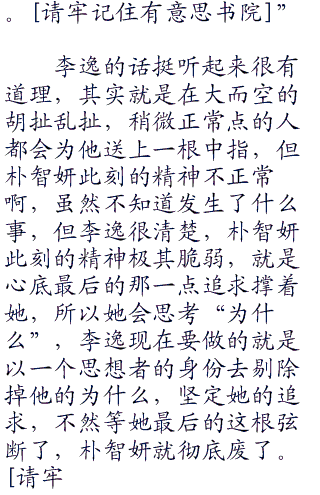 。[请牢记住有意思书院]”
李逸的话挺听起来很有
道理，其实就是在大而空的
胡扯乱扯，稍微正常点的人
都会为他送上一根中指，但
朴智妍此刻的精神不正常
啊，虽然不知道发生了什么
事，但李逸很清楚，朴智妍
此刻的精神极其脆弱，就是
心底最后的那一点追求撑着
她，所以她会思考“为什
么”，李逸现在要做的就是
以一个思想者的身份去剔除
掉他的为什么，坚定她的追
求，不然等她最后的这根弦
断了，朴智妍就彻底废了。
[请牢